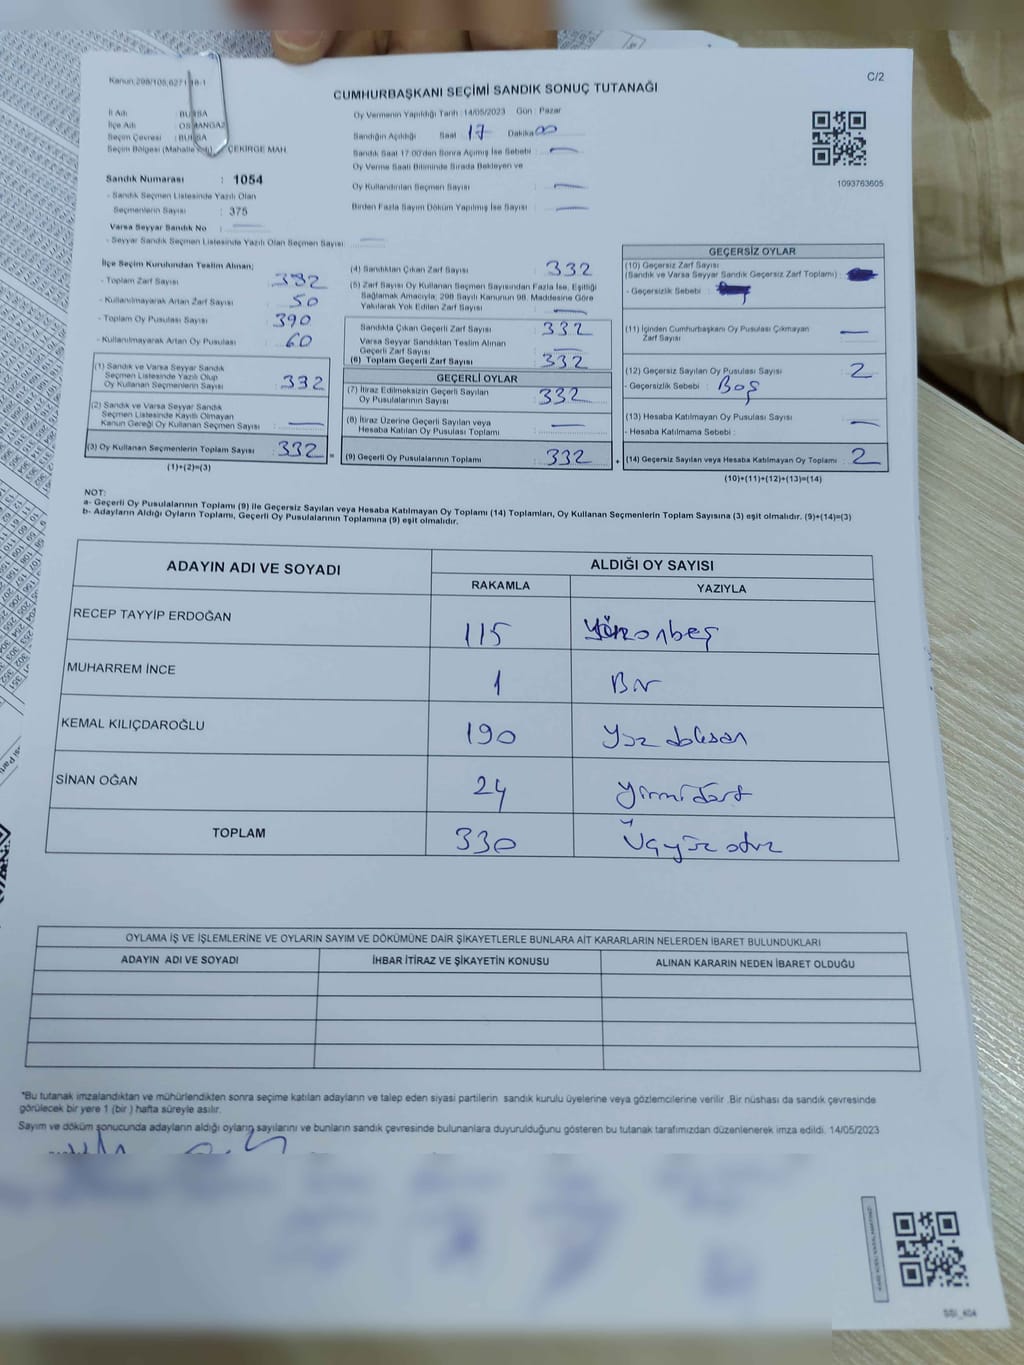 Kanun:298/105,6271/16-1
C/2
CUMHURBAŞKANI SEÇİMİ SANDIK SONUÇ TUTANAĞI
İl Adı : BURSA
İlçe Adı : OSMANGAZİ
Seçim Çevresi : BURSA
Seçim Bölgesi (Mahalle ÇEKİRGE MAH.
Oy Vermenin Yapıldığı Tarih : 14/05/2023 Gün : Pazar
Sandığın Açıldığı Saat 17 Dakika 00
Sandık Saat 17:00'den Sonra Açımış İse Sebebi : —
Oy Verme Saati Bitiminde Sırada Bekleyen ve
Oy Kullandırılan Seçmen Sayısı : —
Birden Fazla Sayım Döküm Yapılmış İse Sayısı : —
1093763605
Sandık Numarası : 1054
- Sandık Seçmen Listesinde Yazılı Olan
Seçmenlerin Sayısı : 375
Varsa Seyyar Sandık No : —
- Seyyar Sandık Seçmen Listesinde Yazılı Olan Seçmen Sayısı: —
İlçe Seçim Kurulundan Teslim Alınan;
- Toplam Zarf Sayısı : 382
- Kullanılmayarak Artan Zarf Sayısı : 50
- Toplam Oy Pusulası Sayısı : 390
- Kullanılmayarak Artan Oy Pusulası : 60
(1) Sandık ve Varsa Seyyar Sandık
Seçmen Listesinde Yazılı Olup
Oy Kullanan Seçmenlerin Sayısı : 332
(2) Sandık ve Varsa Seyyar Sandık
Seçmen Listesinde Kayıtlı Olmayan
Kanun Gereği Oy Kullanan Seçmen Sayısı : —
(3) Oy Kullanan Seçmenlerin Toplam Sayısı : 332
(1)+(2)=(3)
(4) Sandıktan Çıkan Zarf Sayısı : 332
(5) Zarf Sayısı Oy Kullanan Seçmen Sayısından Fazla İse, Eşitliği
Sağlamak Amacıyla; 298 Sayılı Kanunun 98. Maddesine Göre
Yakılarak Yok Edilen Zarf Sayısı : —
Sandıkta Çıkan Geçerli Zarf Sayısı : 332
Varsa Seyyar Sandıktan Teslim Alınan
Geçerli Zarf Sayısı : —
(6) Toplam Geçerli Zarf Sayısı : 332
GEÇERLİ OYLAR
(7) İtiraz Edilmeksizin Geçerli Sayılan
Oy Pusulalarının Sayısı : 332
(8) İtiraz Üzerine Geçerli Sayılan veya
Hesaba Katılan Oy Pusulası Toplamı : —
= (9) Geçerli Oy Pusulalarının Toplamı : 332
GEÇERSİZ OYLAR
(10) Geçersiz Zarf Sayısı
(Sandık ve Varsa Seyyar Sandık Geçersiz Zarf Toplamı) :
- Geçersizlik Sebebi :
(11) İçinden Cumhurbaşkanı Oy Pusulası Çıkmayan
Zarf Sayısı : —
(12) Geçersiz Sayılan Oy Pusulası Sayısı : 2
- Geçersizlik Sebebi : Boş
(13) Hesaba Katılmayan Oy Pusulası Sayısı : —
- Hesaba Katılmama Sebebi :
+ (14) Geçersiz Sayılan veya Hesaba Katılmayan Oy Toplamı : 2
(10)+(11)+(12)+(13)=(14)
NOT:
a- Geçerli Oy Pusulalarının Toplamı (9) ile Geçersiz Sayılan veya Hesaba Katılmayan Oy Toplamı (14) Toplamları, Oy Kullanan Seçmenlerin Toplam Sayısına (3) eşit olmalıdır. (9)+(14)=(3)
b- Adayların Aldığı Oyların Toplamı, Geçerli Oy Pusulalarının Toplamına (9) eşit olmalıdır.
ADAYIN ADI VE SOYADI ALDIĞI OY SAYISI
RAKAMLA YAZIYLA
RECEP TAYYİP ERDOĞAN 115 Yüzonbeş
MUHARREM İNCE 1 Bir
KEMAL KILIÇDAROĞLU 190 Yüz doksan
SİNAN OĞAN 24 Yirmidört
TOPLAM 330 Üçyüz otuz
OYLAMA İŞ VE İŞLEMLERİNE VE OYLARIN SAYIM VE DÖKÜMÜNE DAİR ŞİKAYETLERLE BUNLARA AİT KARARLARIN NELERDEN İBARET BULUNDUKLARI
ADAYIN ADI VE SOYADI İHBAR İTİRAZ VE ŞİKAYETİN KONUSU ALINAN KARARIN NEDEN İBARET OLDUĞU
*Bu tutanak imzalandıktan ve mühürlendikten sonra seçime katılan adayların ve talep eden siyasi partilerin sandık kurulu üyelerine veya gözlemcilerine verilir .Bir nüshası da sandık çevresinde
görülecek bir yere 1 (bir ) hafta süreyle asılır.
Sayım ve döküm sonucunda adayların aldığı oyların sayılarını ve bunların sandık çevresinde bulunanlara duyurulduğunu gösteren bu tutanak tarafımızdan düzenlenerek imza edildi. 14/05/2023